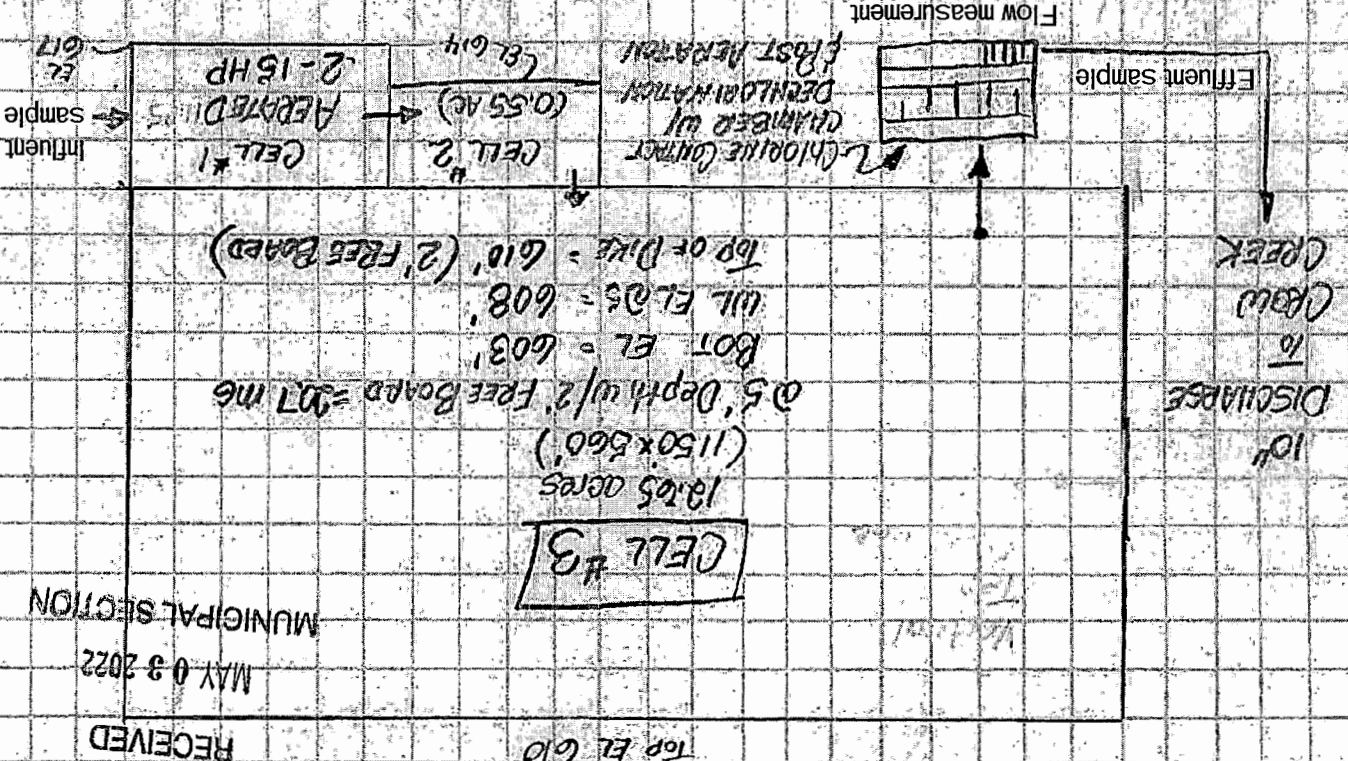 TOP EL 610
RECEIVED
MAY 03 2022
MUNICIPAL SECTION
CELL #3
12.65 acres
(1150 x 560')
@ 5' Depth w/2' FREEBOARD = 20.7 mG
BOT EL = 603'
WL EL @5 = 608'
TOP OF DIKE = 610' (2' FREEBOARD)
10"
DISCHARGE
TO
CROW
CREEK
Effluent Sample
Flow measurement
CHLORINE CONTACT
CHAMBER W/
DECHLORINATION
& POST AERATION
CELL #2
(0.55 AC)
EL 614
CELL #1
AERATED
2-15 HP
Influent
Sample
EL
617